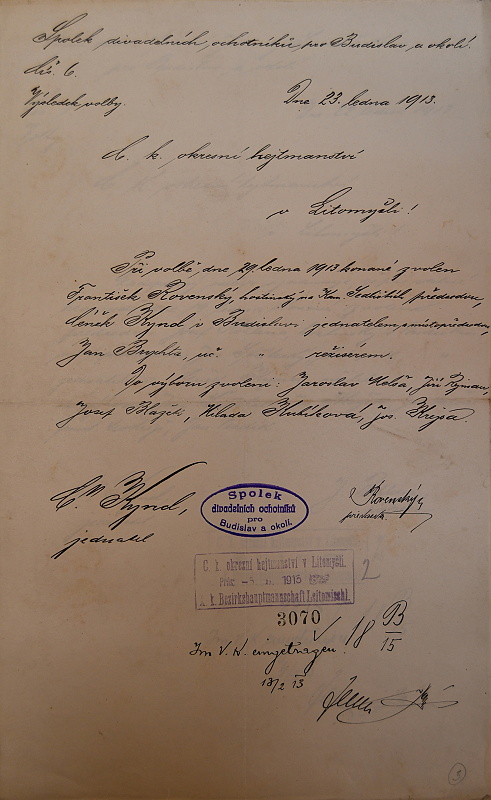 Spolek divadelních ochotníků pro Budislav a okolí.
Čís. 6.
Výsledek volby.
Dne 23. ledna 1913.
C. k. okresní hejtmanství
v Litomyšli!
Při volbě, dne 29. ledna 1913 konané zvolen
František Rovenský, hostinský na Kam. Sedlišti, předsedou,
Čeněk Kynd v Budislavi jednatelem a místopředsedou,
Jan Brychta, uč. " režisérem.
Do výboru zvoleni: Jaroslav Jiří
Josef Blažek, Kubíková, Jos. Krejsa.
Č. Kynd,
jednatel
Rovenský
předseda
Spolek
divadelních ochotníků
pro
Budislav a okolí.
C. k. okresní hejtmanství v Litomyšli.
1915
K. k. Bezirkshauptmannschaft Leitomischl.
2
3070
Im V. K. eingetragen!
18 B/15
13/2 13
3